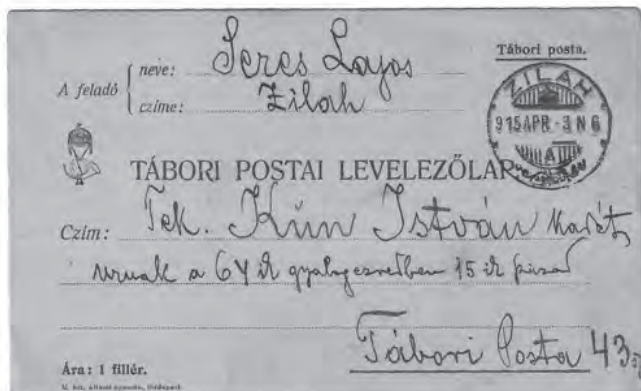 Tábori posta.
A feladó
neve: Seres Lajos
czíme: Zilah
ZILAH
915 APR -3 N6
TÁBORI POSTAI LEVELEZŐLAP
Czím: Tek. Kún István
urnak a 64 ik gyalogezredben 15 ik
Tábori Posta 43
Ára: 1 fillér.